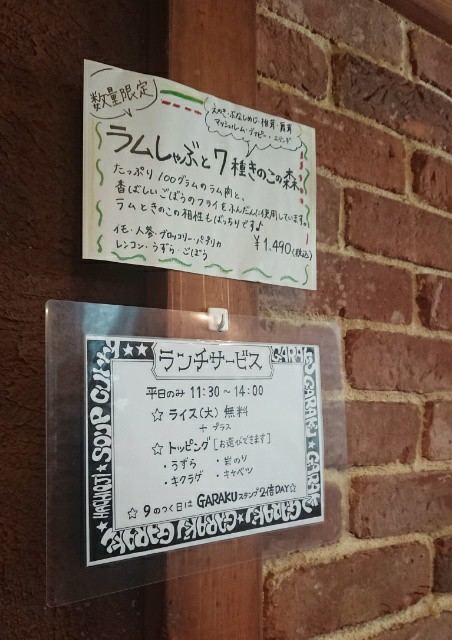 数量限定
えのき・ぶなしめじ・椎茸・舞茸
マッシュルーム・
エリンギ
ラムしゃぶと7種きのこの森
たっぷり100グラムのラム肉と、
香ばしいごぼうのフライもふんだんに使用しています。
ラムときのこの相性もばっちりです♪
イモ・人参・ブロッコリー・パプリカ
レンコン・うずら・ごぼう
¥1,490(税込)
ランチサービス
平日のみ 11:30~14:00
☆ ライス(大) 無料
+プラス
☆ トッピング [お選びできます]
・うずら ・岩のり
・キクラゲ ・キャベツ
☆ 9のつく日は GARAKUスタンプ2倍DAY☆
HACHIOJI ★ SOUP CURRY ★★
GARAKU
GARAKU
GARAKU
GARAKU
GARAKU